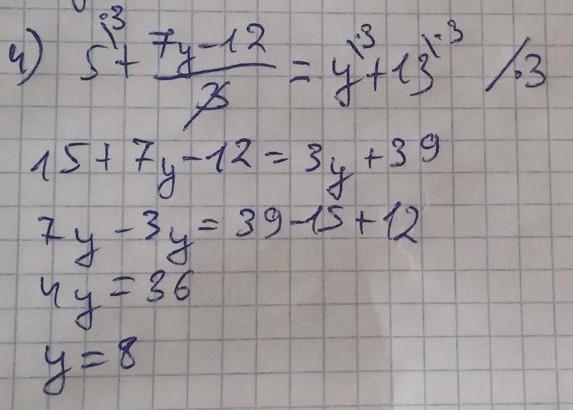 4) 5\·3 + (7y-12)/3 = y\·3 + 13\·3 /·3
15 + 7y - 12 = 3y + 39
7y - 3y = 39 - 15 + 12
4y = 36
y = 8